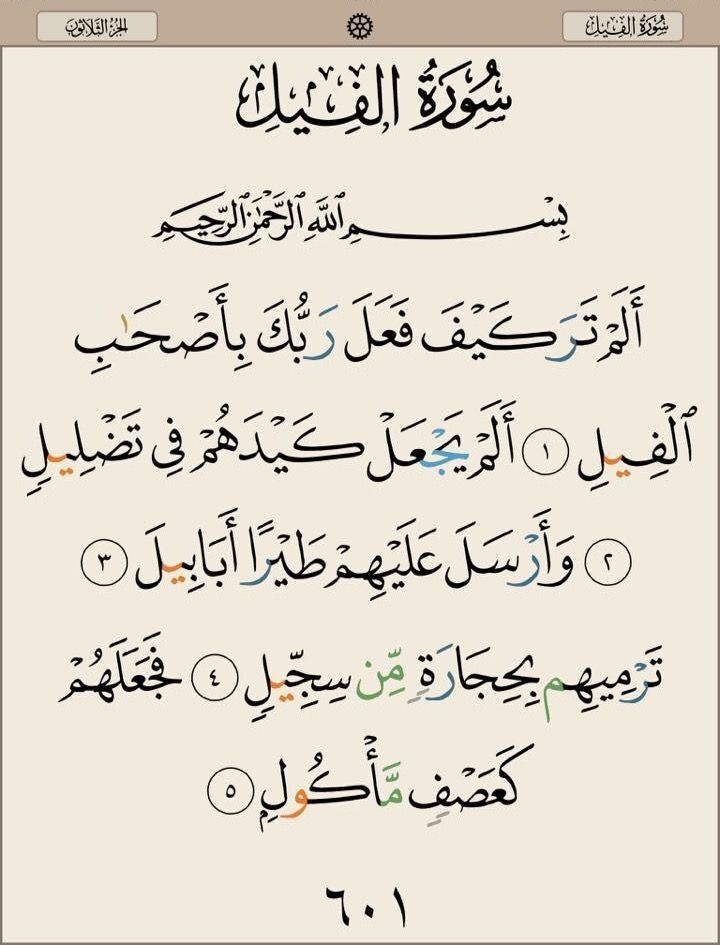 سُورَةُ الفِيلِ
الجُزْءُ الثَّلَاثُونَ
سُورَةُ الفِيلِ
بِسْمِ ٱللَّهِ ٱلرَّحْمَٰنِ ٱلرَّحِيمِ
أَلَمْ تَرَ كَيْفَ فَعَلَ رَبُّكَ بِأَصْحَٰبِ
ٱلْفِيلِ ١ أَلَمْ يَجْعَلْ كَيْدَهُمْ فِى تَضْلِيلٍ
٢ وَأَرْسَلَ عَلَيْهِمْ طَيْرًا أَبَابِيلَ ٣
تَرْمِيهِم بِحِجَارَةٍ مِّن سِجِّيلٍ ٤ فَجَعَلَهُمْ
كَعَصْفٍ مَّأْكُولٍ ٥
٦٠١